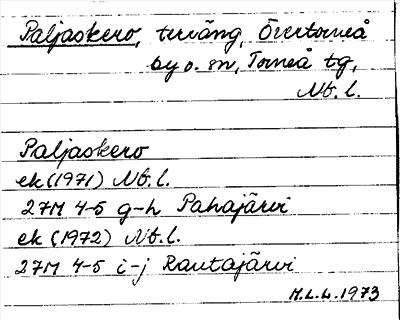 Paljaskero, turäng, Övertorneå
by o. sn, Torneå tg,
Nb. l.
Paljaskero
ek (1971) Nb. l.
27M 4-5 g-h Pahajärvi
ek (1972) Nb. l.
27M 4-5 i-j Rautajärvi
M.L.L. 1973